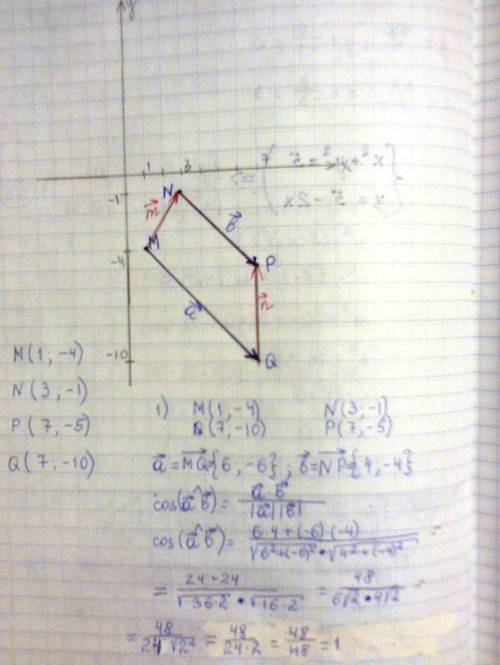 y
1 3 7
-1
N
m⃗
M
b⃗
-4
P
a⃗
n⃗
-10
Q
M(1, -4)
N(3, -1)
P(7, -5)
Q(7, -10)
1) M(1, -4) N(3, -1)
Q(7, -10) P(7, -5)
a⃗ = MQ⃗{6, -6} ; b⃗ = NP⃗{4, -4}
cos(a⃗^b⃗) = a⃗ · b⃗ / |a⃗||b⃗|
cos(a⃗^b⃗) = 6·4+(-6)·(-4) / √6²+(-6)² · √4²+(-4)² =
= 24+24 / √36·2 · √16·2 = 48 / 6√2 · 4√2 =
= 48 / 24 √2² = 48 / 24·2 = 48 / 48 = 1